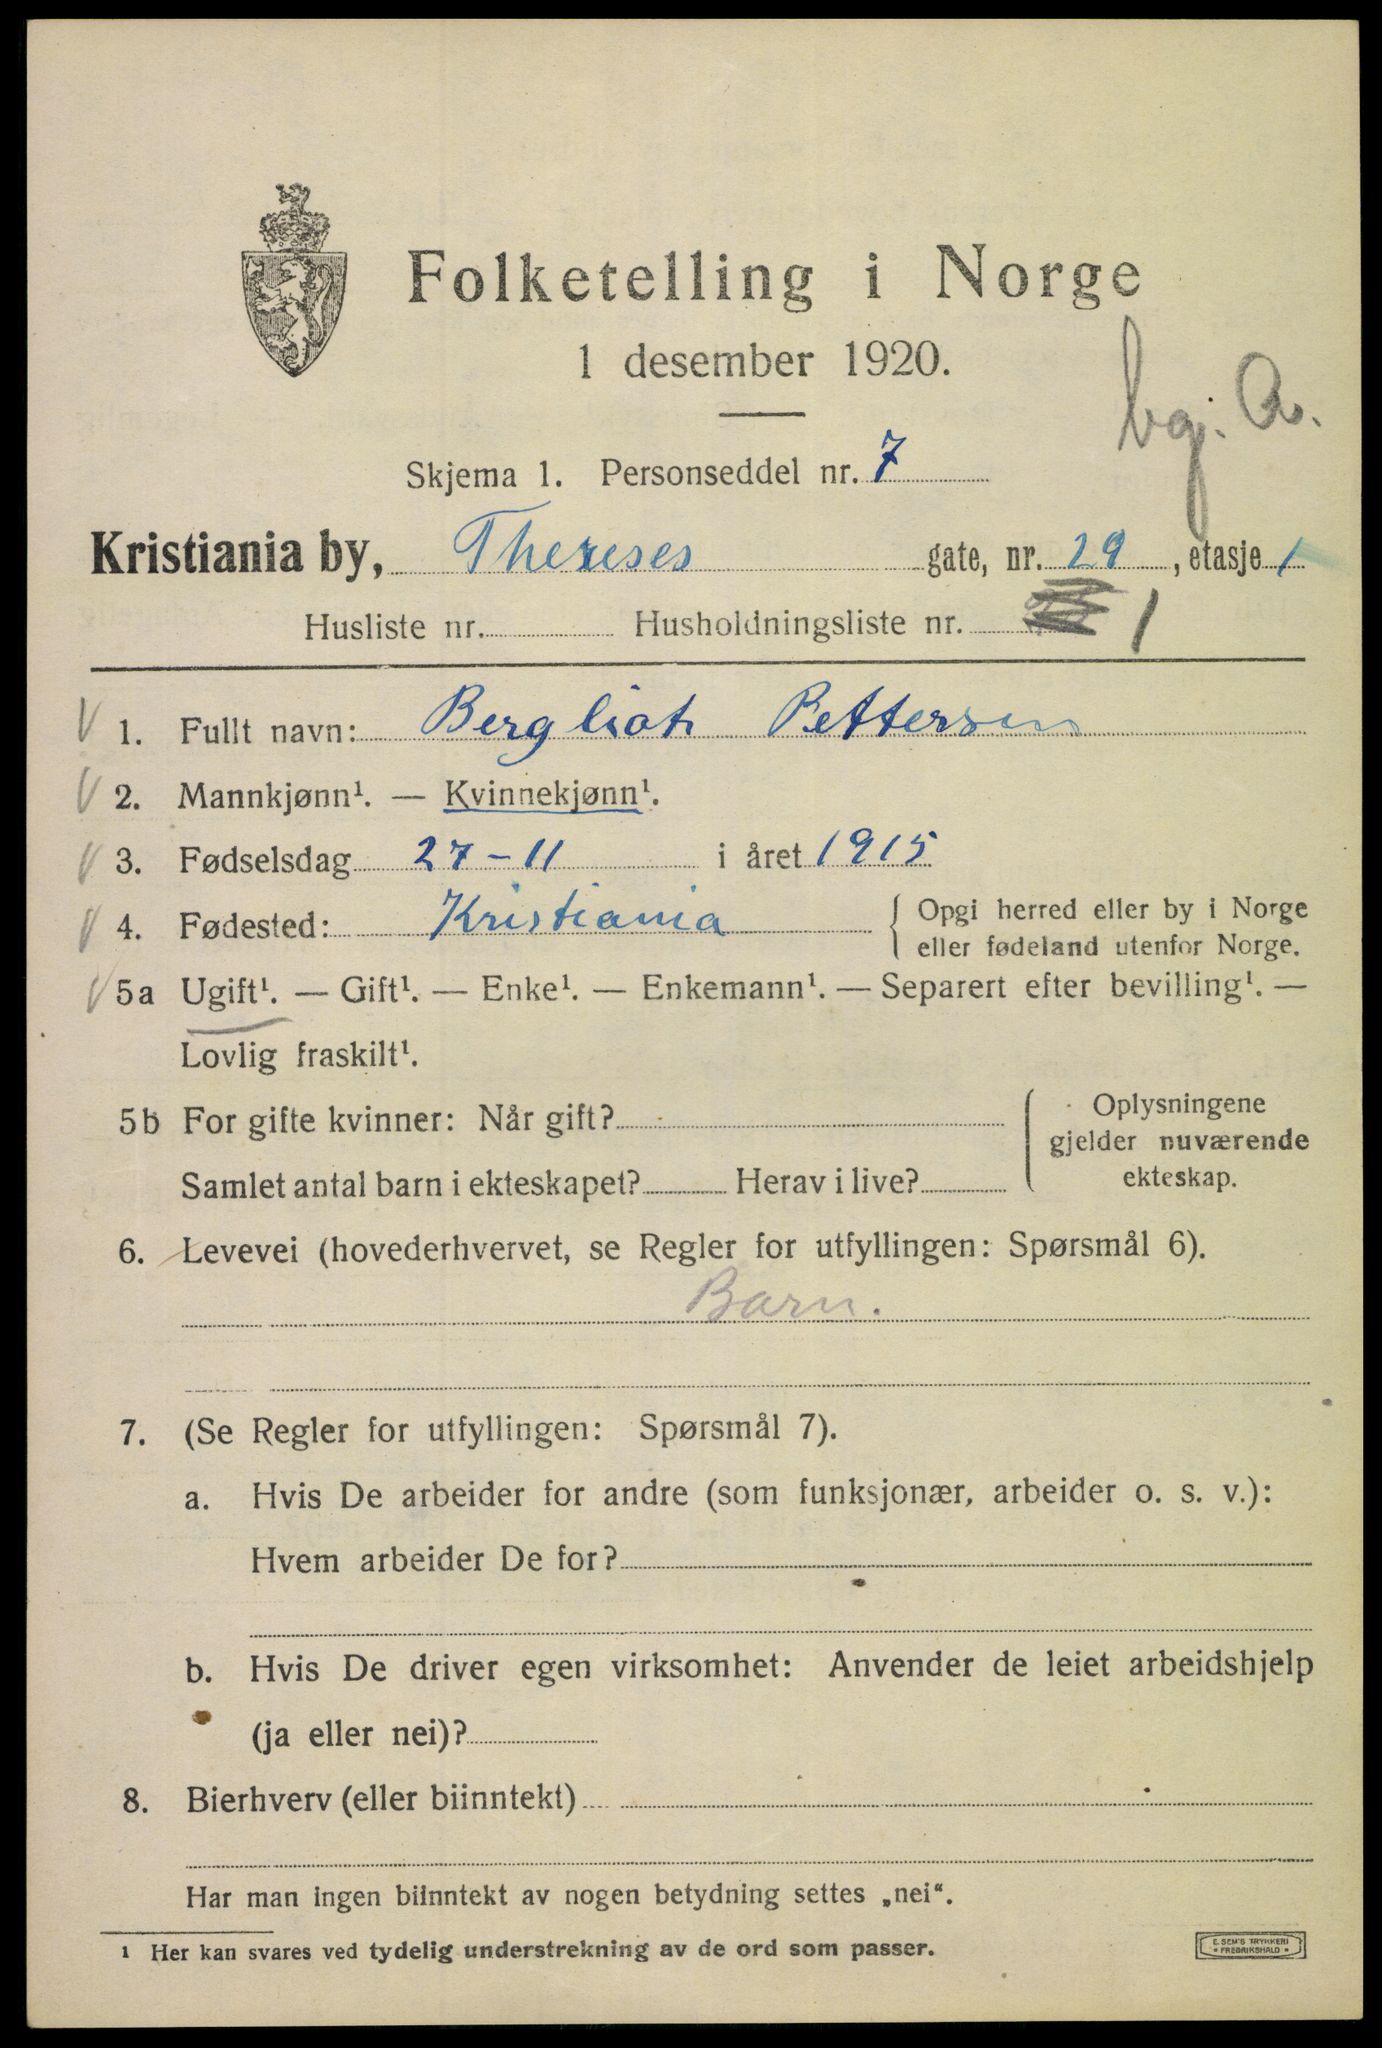 Folketelling i Norge
1 desember 1920.
bg. A.
Skjema 1. Personseddel nr. 7
Kristiania by, Thereses gate, nr. 29, etasje 1
Husliste nr. Husholdningsliste nr. 1
1. Fullt navn: Bergliot Pettersen
2. Mannkjønn¹. — Kvinnekjønn¹.
3. Fødselsdag 27-11 i året 1915
4. Fødested: Kristiania { Opgi herred eller by i Norge
eller fødeland utenfor Norge.
5a Ugift¹. — Gift¹. — Enke¹. — Enkemann¹. — Separert efter bevilling¹. —
Lovlig fraskilt¹.
5b For gifte kvinner: Når gift?
Samlet antal barn i ekteskapet? Herav i live?
Oplysningene
gjelder nuværende
ekteskap.
6. Levevei (hovederhvervet, se Regler for utfyllingen: Spørsmål 6).
Barn.
7. (Se Regler for utfyllingen: Spørsmål 7).
a. Hvis De arbeider for andre (som funksjonær, arbeider o. s. v.):
Hvem arbeider De for?
b. Hvis De driver egen virksomhet: Anvender de leiet arbeidshjelp
(ja eller nei)?
8. Bierhverv (eller biinntekt)
Har man ingen biinntekt av nogen betydning settes „nei“.
1 Her kan svares ved tydelig understrekning av de ord som passer.
E. SEM'S TRYKKERI
* FREDRIKSHALD *